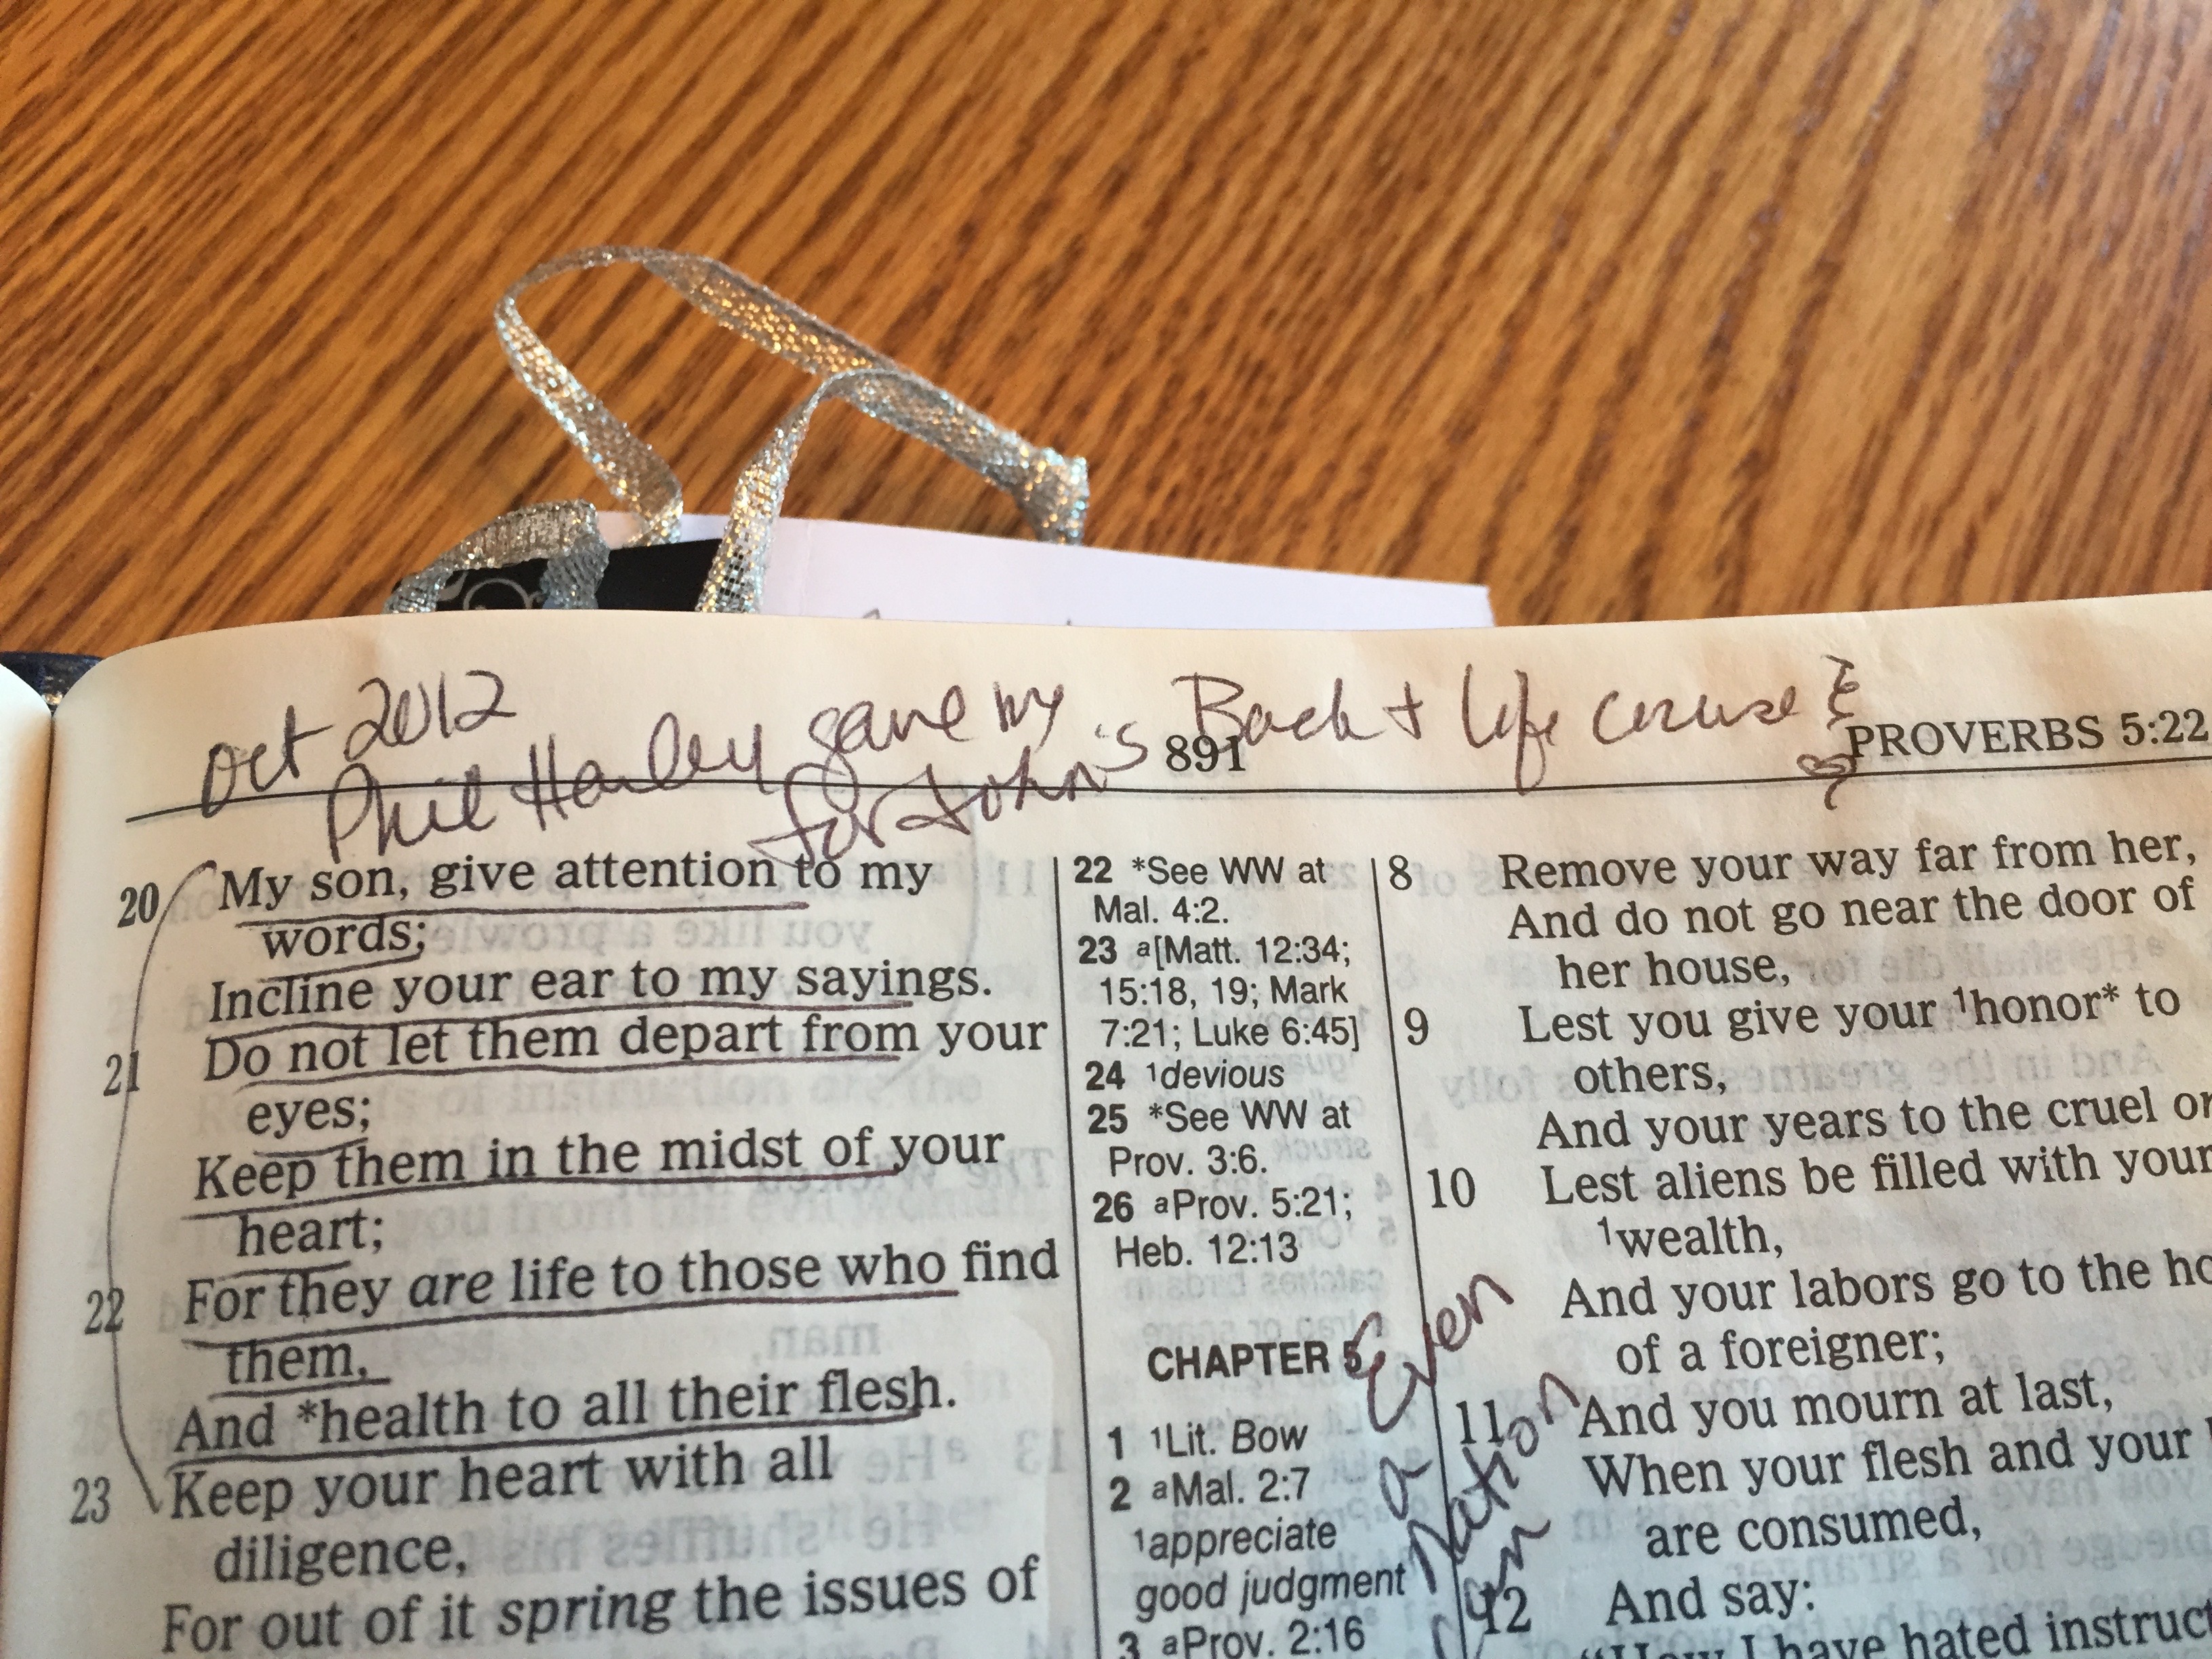 oct 2012
Phil Hanley gave my Back + life
for John's
891
PROVERBS 5:22
20 My son, give attention to my
words;
Incline your ear to my sayings.
21 Do not let them depart from your
eyes;
Keep them in the midst of your
heart;
22 For they are life to those who find
them,
And *health to all their flesh.
23 Keep your heart with all
diligence,
For out of it spring the issues of
22 *See WW at
Mal. 4:2.
23 a[Matt. 12:34;
15:18, 19; Mark
7:21; Luke 6:45]
24 1devious
25 *See WW at
Prov. 3:6.
26 aProv. 5:21;
Heb. 12:13
CHAPTER 5
1 1Lit. Bow
2 aMal. 2:7
1appreciate
good judgment
3 aProv. 2:16
Even
a
Nation
can
8 Remove your way far from her,
And do not go near the door of
her house,
9 Lest you give your 1honor* to
others,
And your years to the cruel
10 Lest aliens be filled with your
1wealth,
And your labors go to the
of a foreigner;
11 And you mourn at last,
When your flesh and your
are consumed,
12 And say:
"How I have hated